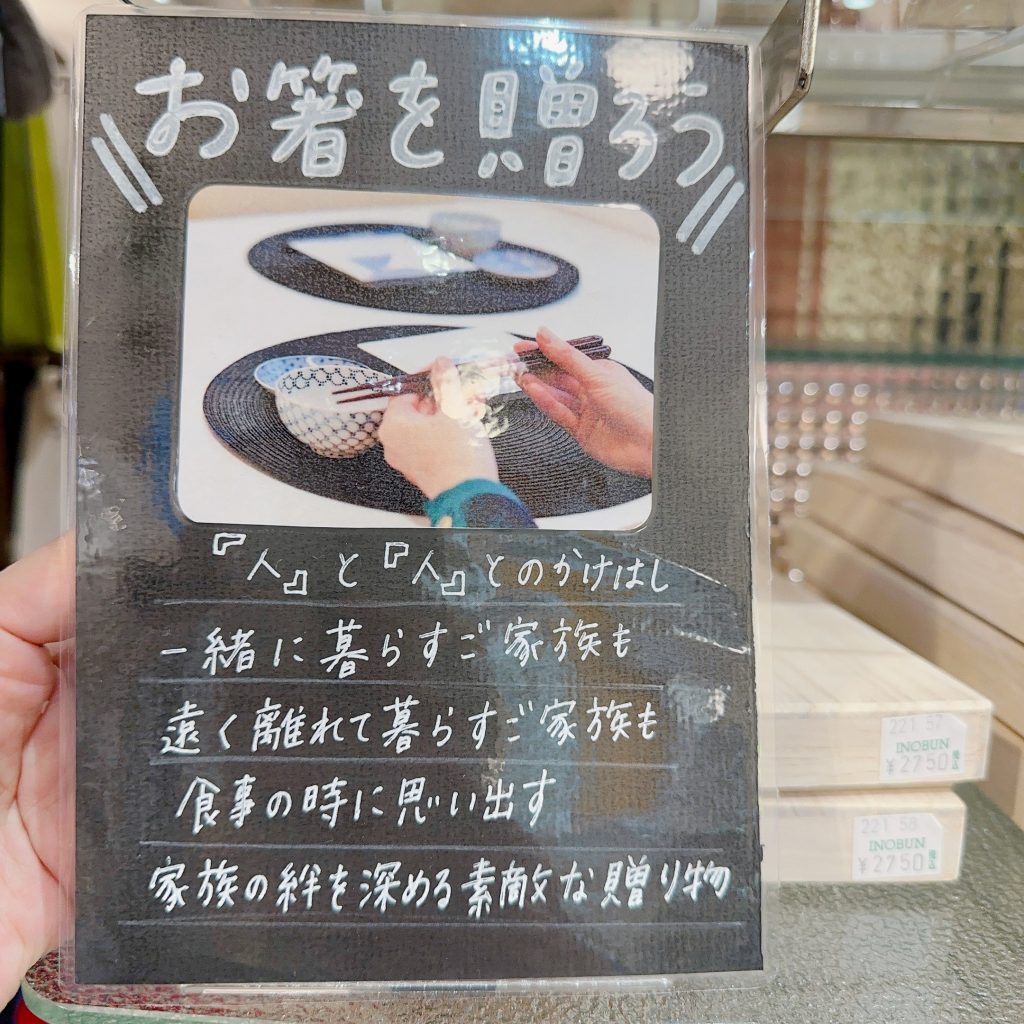 お箸を贈ろう
『人』と『人』とのかけはし
一緒に暮らすご家族も
遠く離れて暮らすご家族も
食事の時に思い出す
家族の絆を深める素敵な贈り物
221 57
INOBUN
¥2750 税込
221 58
INOBUN
¥2750 税込